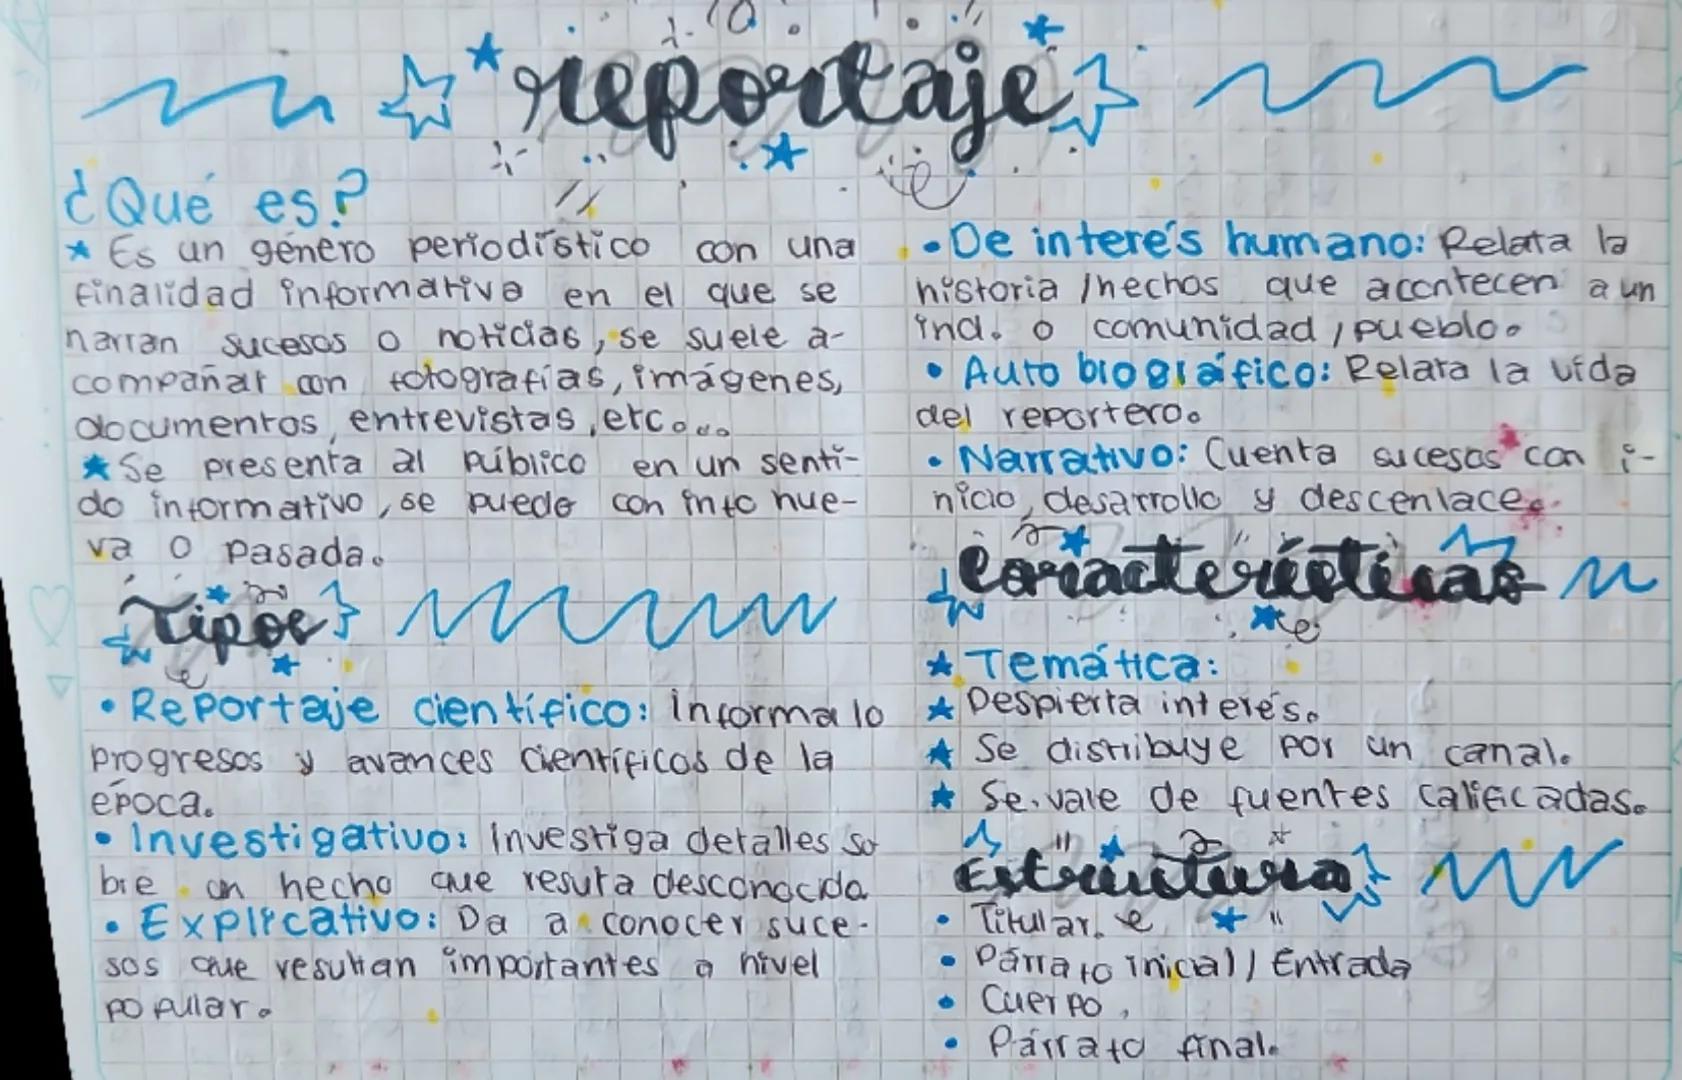 reportaje
¿Qué es?
Es un género periodístico con una
finalidad informativa en el que se
narran sucesos o noticias, se suele a-
compañar con fotografías, imágenes,
documentos, entrevistas, etc....
Se presenta al público en un senti-
do informativo, se puede con info nue-
va o pasada.
Tipos
• Reportaje científico: Informa lo
progresos y avances científicos de la
época.
• Investigativo: Investiga detalles so
bre un hecho que resulta desconocida
• Explicativo: Da a conocer suce-
sos que resultan importantes a nivel
popular.
• De interés humano: Relata la
historia /hechos que acontecen a un
ind. o comunidad / pueblo.
• Auto biográfico: Relata la vida
del reportero.
• Narrativo: Cuenta sucesos con i-
nicio, desarrollo y descenlace.
Características
Temática:
Despierta interés.
Se distribuye por un canal.
Se vale de fuentes calificadas.
Estructura
• Titular.
• Párrafo inicial / Entrada
• Cuerpo.
• Párrafo final.